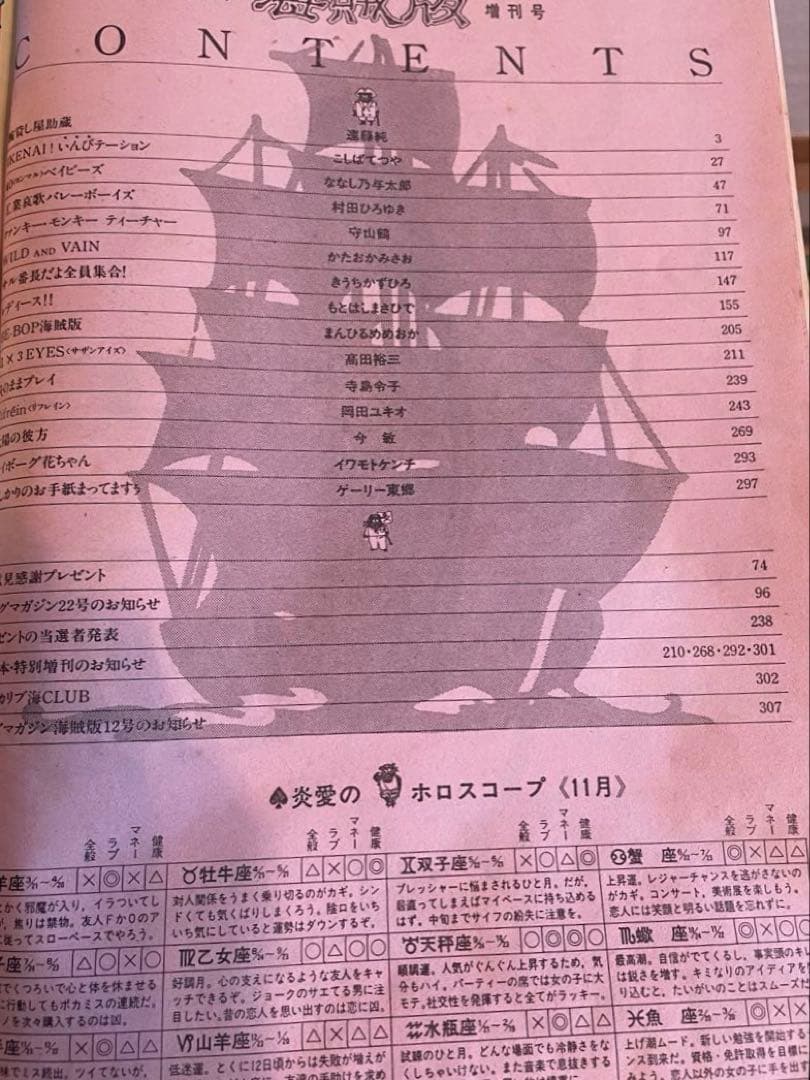 海賊版 増刊号
CONTENTS
貸し屋助蔵 遠藤純 3
IKENAI！いんびテーション こしばてつや 27
ベイビーズ ななし乃与太郎 47
工業哀歌バレーボーイズ 村田ひろゆき 71
ァンキー・モンキー ティーチャー 守山鶴 97
WILD AND VAIN かたおかみさお 117
オル番長だよ全員集合！ きうちかずひろ 147
ディース!! もとはしまさひで 155
BE-BOP海賊版 まんひるめめおか 205
3×3 EYES〈サザンアイズ〉 高田裕三 211
のままプレイ 寺島令子 239
frein〈リフレイン〉 岡田ユキオ 243
陽の彼方 今 敏 269
イボーグ花ちゃん イワモトケンチ 293
かりのお手紙まってますぅ ゲーリー東郷 297
見感謝プレゼント 74
グマガジン22号のお知らせ 96
ゼントの当選者発表 238
本・特別増刊のお知らせ 210・268・292・301
カリブ海CLUB 302
グマガジン海賊版12号のお知らせ 307
♠炎愛の ホロスコープ《11月》
全般 ラブ マネー 健康 全般 ラブ マネー 健康 全般 ラブ マネー 健康 全般 ラブ マネー 健康
羊座 ×◎×△
かく邪魔が入り、イラついてし
が、焦りは禁物。友人FかOのア
に従ってスローペースでやろう。
♉牡牛座 △×○◎
対人関係をうまく乗り切るのがカギ。シン
ドくても気くばりしまくろう。陰口をいち
いち気にしていると運勢はダウンするぞ。
♊双子座 ×○△◎
プレッシャーに悩まされるひと月。だが、
居直ってしまえばマイペースに持ち込める
はず。中旬までサイフの紛失に注意を。
♋蟹 座 ◎×△△
上昇運。レジャーチャンスを逃がさないの
がカギ。コンサート、美術展を楽しもう。
恋人には笑顔と明るい話題を忘れずに。
子座 △○×○
でくつろいで心と体を休ませる
に行動してもポカミスの連続だ。
ノを次々購入するのは凶。
♍乙女座 ○△○○
好調月。心の支えになるような友人をキャ
ッチできるぞ。ジョークのサエてる男に注
目したい。昔の恋人を思い出すのは恋に凶。
♎天秤座 ○◎◎○
順調運。人気がぐんぐん上昇するため、気
分もハイ。パーティーの席では女の子に大
モテ。社交性を発揮すると全てがラッキー。
♏蠍 座 ◎×○
最高潮。自信がでてくるし、事実頭のキレ
は鋭さを増す。キミなりのアイディアを
り込むと、たいがいのことはスムーズだ
手座 ×◎△△
味でミス続出、ツイてないが、
♑山羊座 △×△×
低迷運。とくに12日頃からは失敗が増えが
♒水瓶座 ×◎△△
試練のひと月。どんな場面でも冷静さをな
くしちゃいけない。また音楽で息抜きする
♓魚 座 ◎××
上げ潮ムード。新しい勉強を開始する
ンス到来だ。資格・免許取得を目標に
みよう。恋人以外の女の子に手を出す